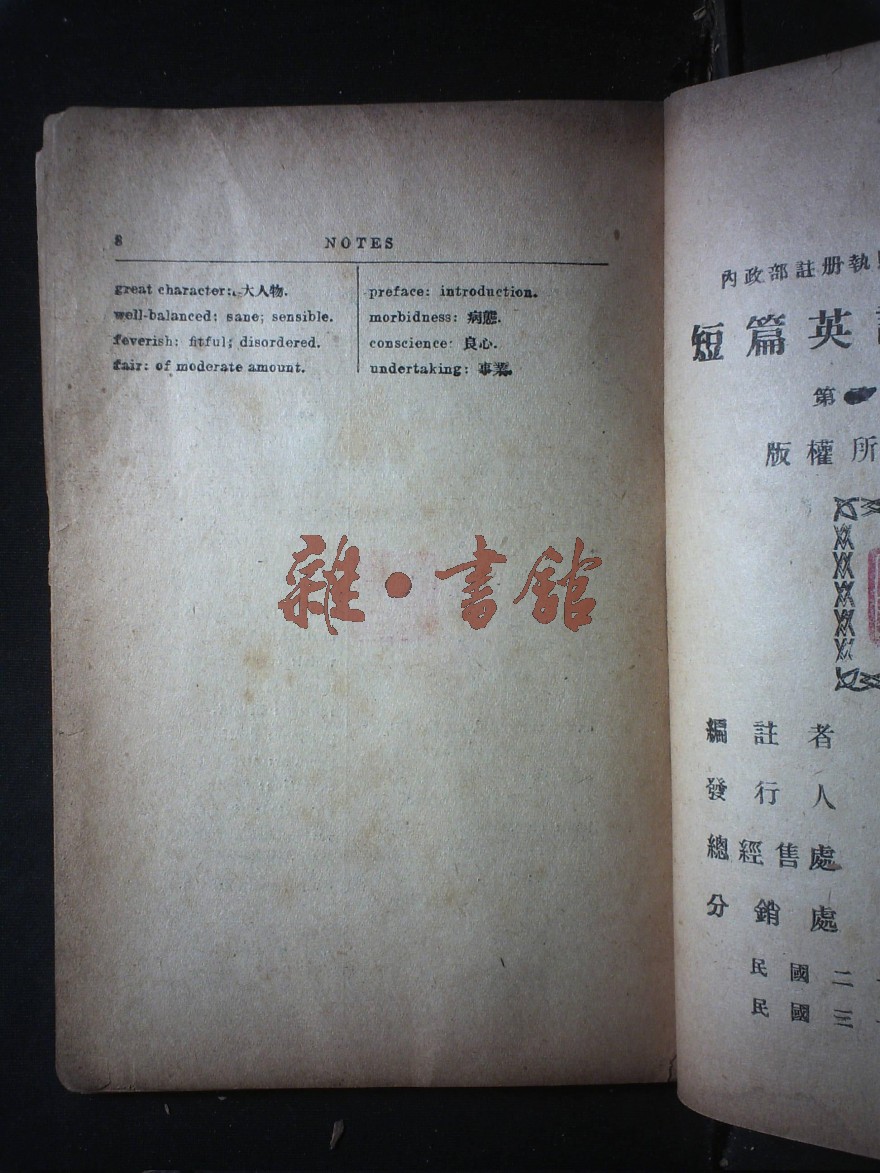 8
NOTES
great character: 大人物.
well-balanced: sane; sensible.
feverish: fitful; disordered.
fair: of moderate amount.
preface: introduction.
morbidness: 病態.
conscience: 良心.
undertaking: 事業.
雜·書館
內政部註册執
短篇英
第
版權所
編註者
發行人
總經售處
分銷處
民國二
民國三